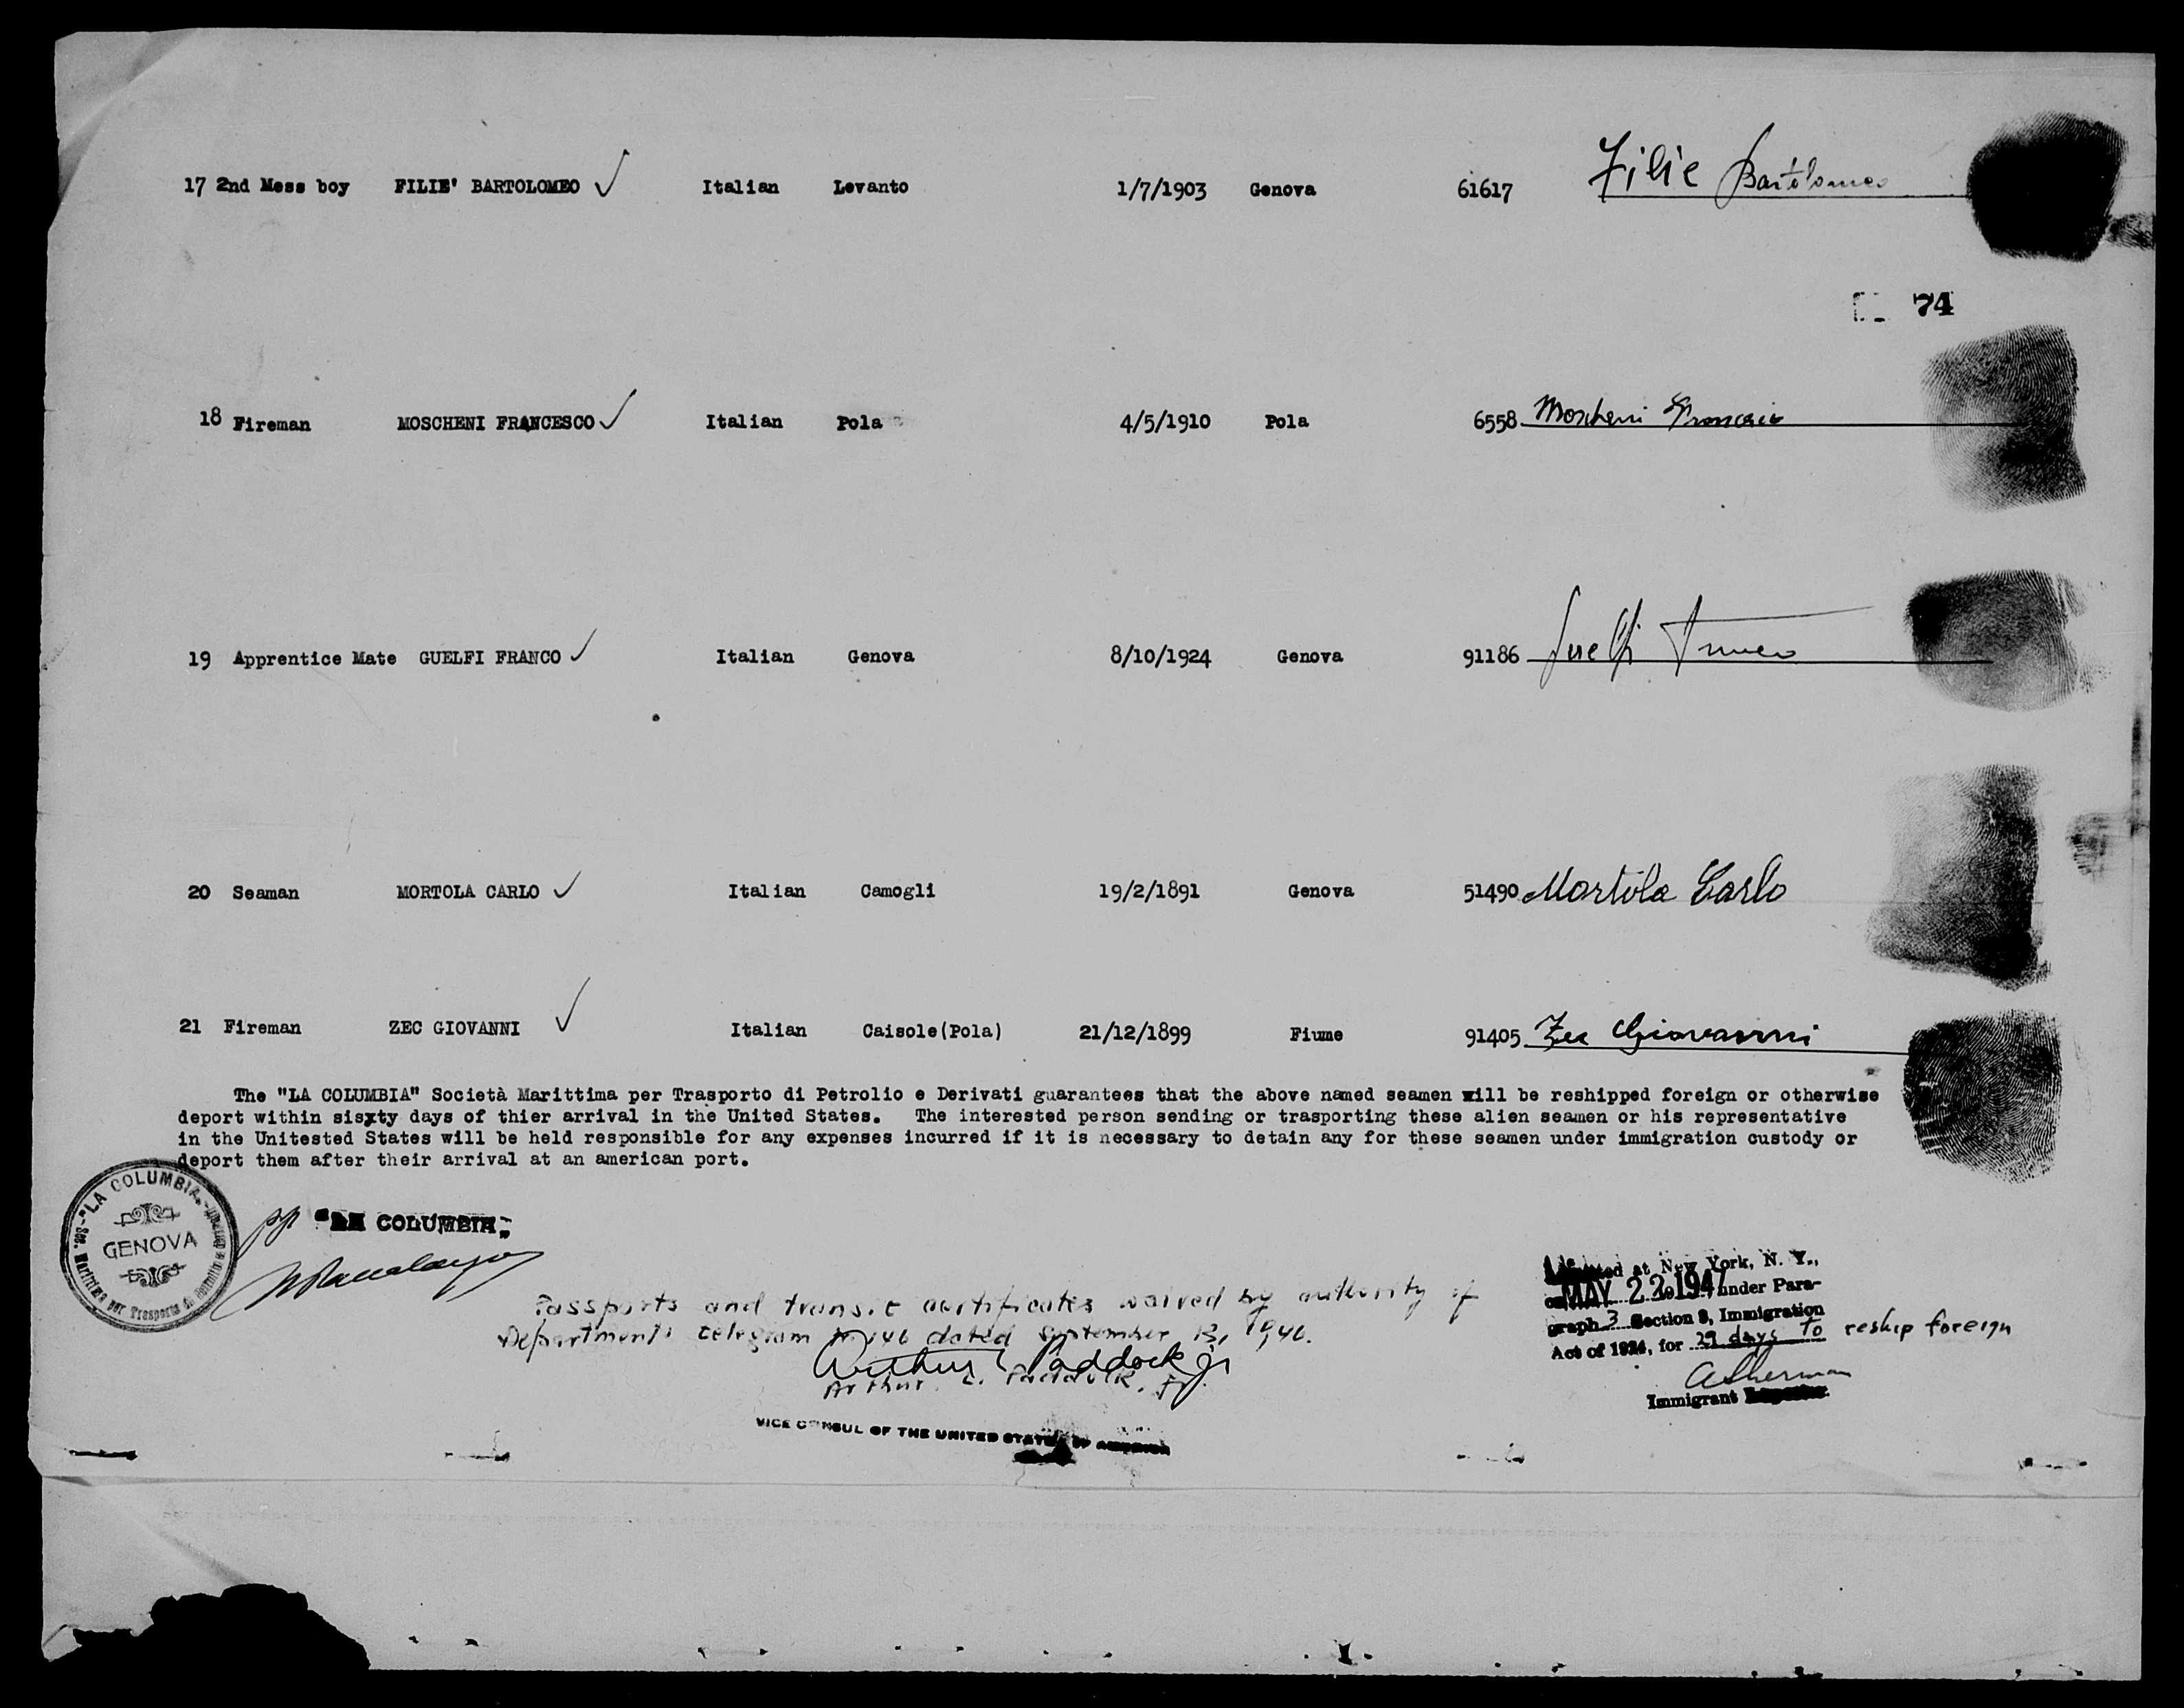 17 2nd Mess boy FILIE' BARTOLOMEO ✓ Italian Levanto 1/7/1903 Genova 61617 Filie Bartolomeo
74
18 Fireman MOSCHENI FRANCESCO ✓ Italian Pola 4/5/1910 Pola 6558 Moscheni Francesco
19 Apprentice Mate GUELFI FRANCO ✓ Italian Genova 8/10/1924 Genova 91186 Guelfi Franco
20 Seaman MORTOLA CARLO ✓ Italian Camogli 19/2/1891 Genova 51490 Mortola Carlo
21 Fireman ZEC GIOVANNI ✓ Italian Caisole(Pola) 21/12/1899 Fiume 91405 Zec Giovanni
The "LA COLUMBIA" Società Marittima per Trasporto di Petrolio e Derivati guarantees that the above named seamen will be reshipped foreign or otherwise
deport within sisxty days of thier arrival in the United States. The interested person sending or trasporting these alien seamen or his representative
in the Unitested States will be held responsible for any expenses incurred if it is necessary to detain any for these seamen under immigration custody or
deport them after their arrival at an american port.
"LA COLUMBIA"
GENOVA
Soc. Marittima per Trasporto di Petrolio e Derivati
pp "LA COLUMBIA"
Passports and transit certificates waived by authority of
Department's telegram 146 dated September 13, 1946.
Arthur L. Paddock Jr
Arthur L. Paddock, Jr.
VICE CONSUL OF THE UNITED STATES OF AMERICA
at New York, N. Y.,
on MAY 22 1947 under Para-
graph 3 Section 3, Immigration
Act of 1924, for 29 days to reship foreign
ASherman
Immigrant Inspector